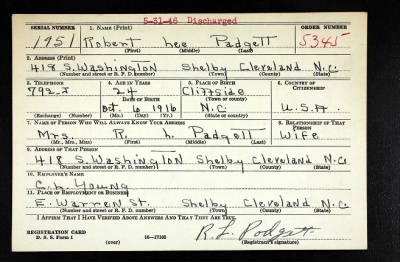 5-31-46 Discharged
SERIAL NUMBER 1. NAME (Print) ORDER NUMBER
1951 Robert Lee Padgett 5345
(First) (Middle) (Last)
2. ADDRESS (Print)
418 S. Washington Shelby Cleveland N.C.
(Number and street or R. F. D. number) (Town) (County) (State)
3. TELEPHONE 4. AGE IN YEARS 5. PLACE OF BIRTH 6. COUNTRY OF CITIZENSHIP
792-J 24 Cliffside
DATE OF BIRTH (Town or county)
Oct. 6 1916 N.C. U.S.A.
(Exchange) (Number) (Mo.) (Day) (Yr.) (State or country)
7. NAME OF PERSON WHO WILL ALWAYS KNOW YOUR ADDRESS 8. RELATIONSHIP OF THAT PERSON
Mrs. R. L. Padgett Wife
(Mr., Mrs., Miss) (First) (Middle) (Last)
9. ADDRESS OF THAT PERSON
418 S. Washington Shelby Cleveland N.C.
(Number and street or R. F. D. number) (Town) (County) (State)
10. EMPLOYER'S NAME
C. L. Young
11. PLACE OF EMPLOYMENT OR BUSINESS
E. Warren St. Shelby Cleveland N.C.
(Number and street or R. F. D. number) (Town) (County) (State)
I AFFIRM THAT I HAVE VERIFIED ABOVE ANSWERS AND THAT THEY ARE TRUE.
R. L. Padgett
REGISTRATION CARD
D. S. S. Form 1 (over) 16-17105 (Registrant's signature)